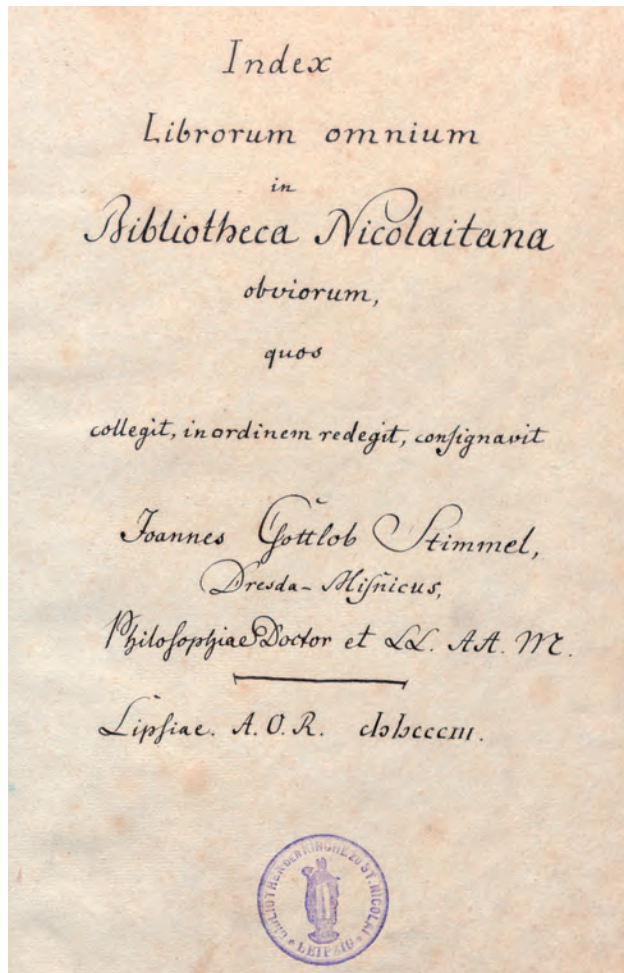 Index
Librorum omnium
in
Bibliotheca Nicolaitana
obviorum,
quos
collegit, in ordinem redegit, consignavit
Joannes Gottlob Stimmel,
Dresda-Misnicus,
Philosophiae Doctor et LL. AA. M.
Lipsiae. A. O. R. cIɔIɔcccIII.
BIBLIOTHEK DER KIRCHE ZU ST. NICOLAI
LEIPZIG